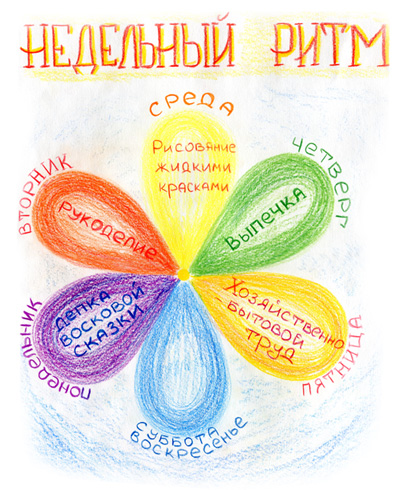 НЕДЕЛЬНЫЙ РИТМ
ПОНЕДЕЛЬНИК
ЛЕПКА
ВОСКОВОЙ
СКАЗКИ
ВТОРНИК
РУКОДЕЛИЕ
СРЕДА
Рисование
жидкими
красками
ЧЕТВЕРГ
ВЫПЕЧКА
ПЯТНИЦА
Хозяйственно
- БЫТОВОЙ
ТРУД
СУББОТА
ВОСКРЕСЕНЬЕ